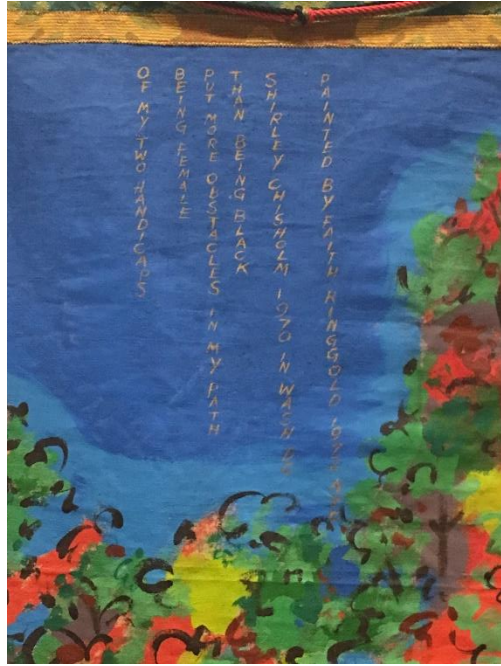 OF MY TWO HANDICAPS
BEING FEMALE
PUT MORE OBSTACLES IN MY PATH
THAN BEING BLACK
SHIRLEY CHISHOLM 1970 IN WASH DC
PAINTED BY FAITH RINGGOLD